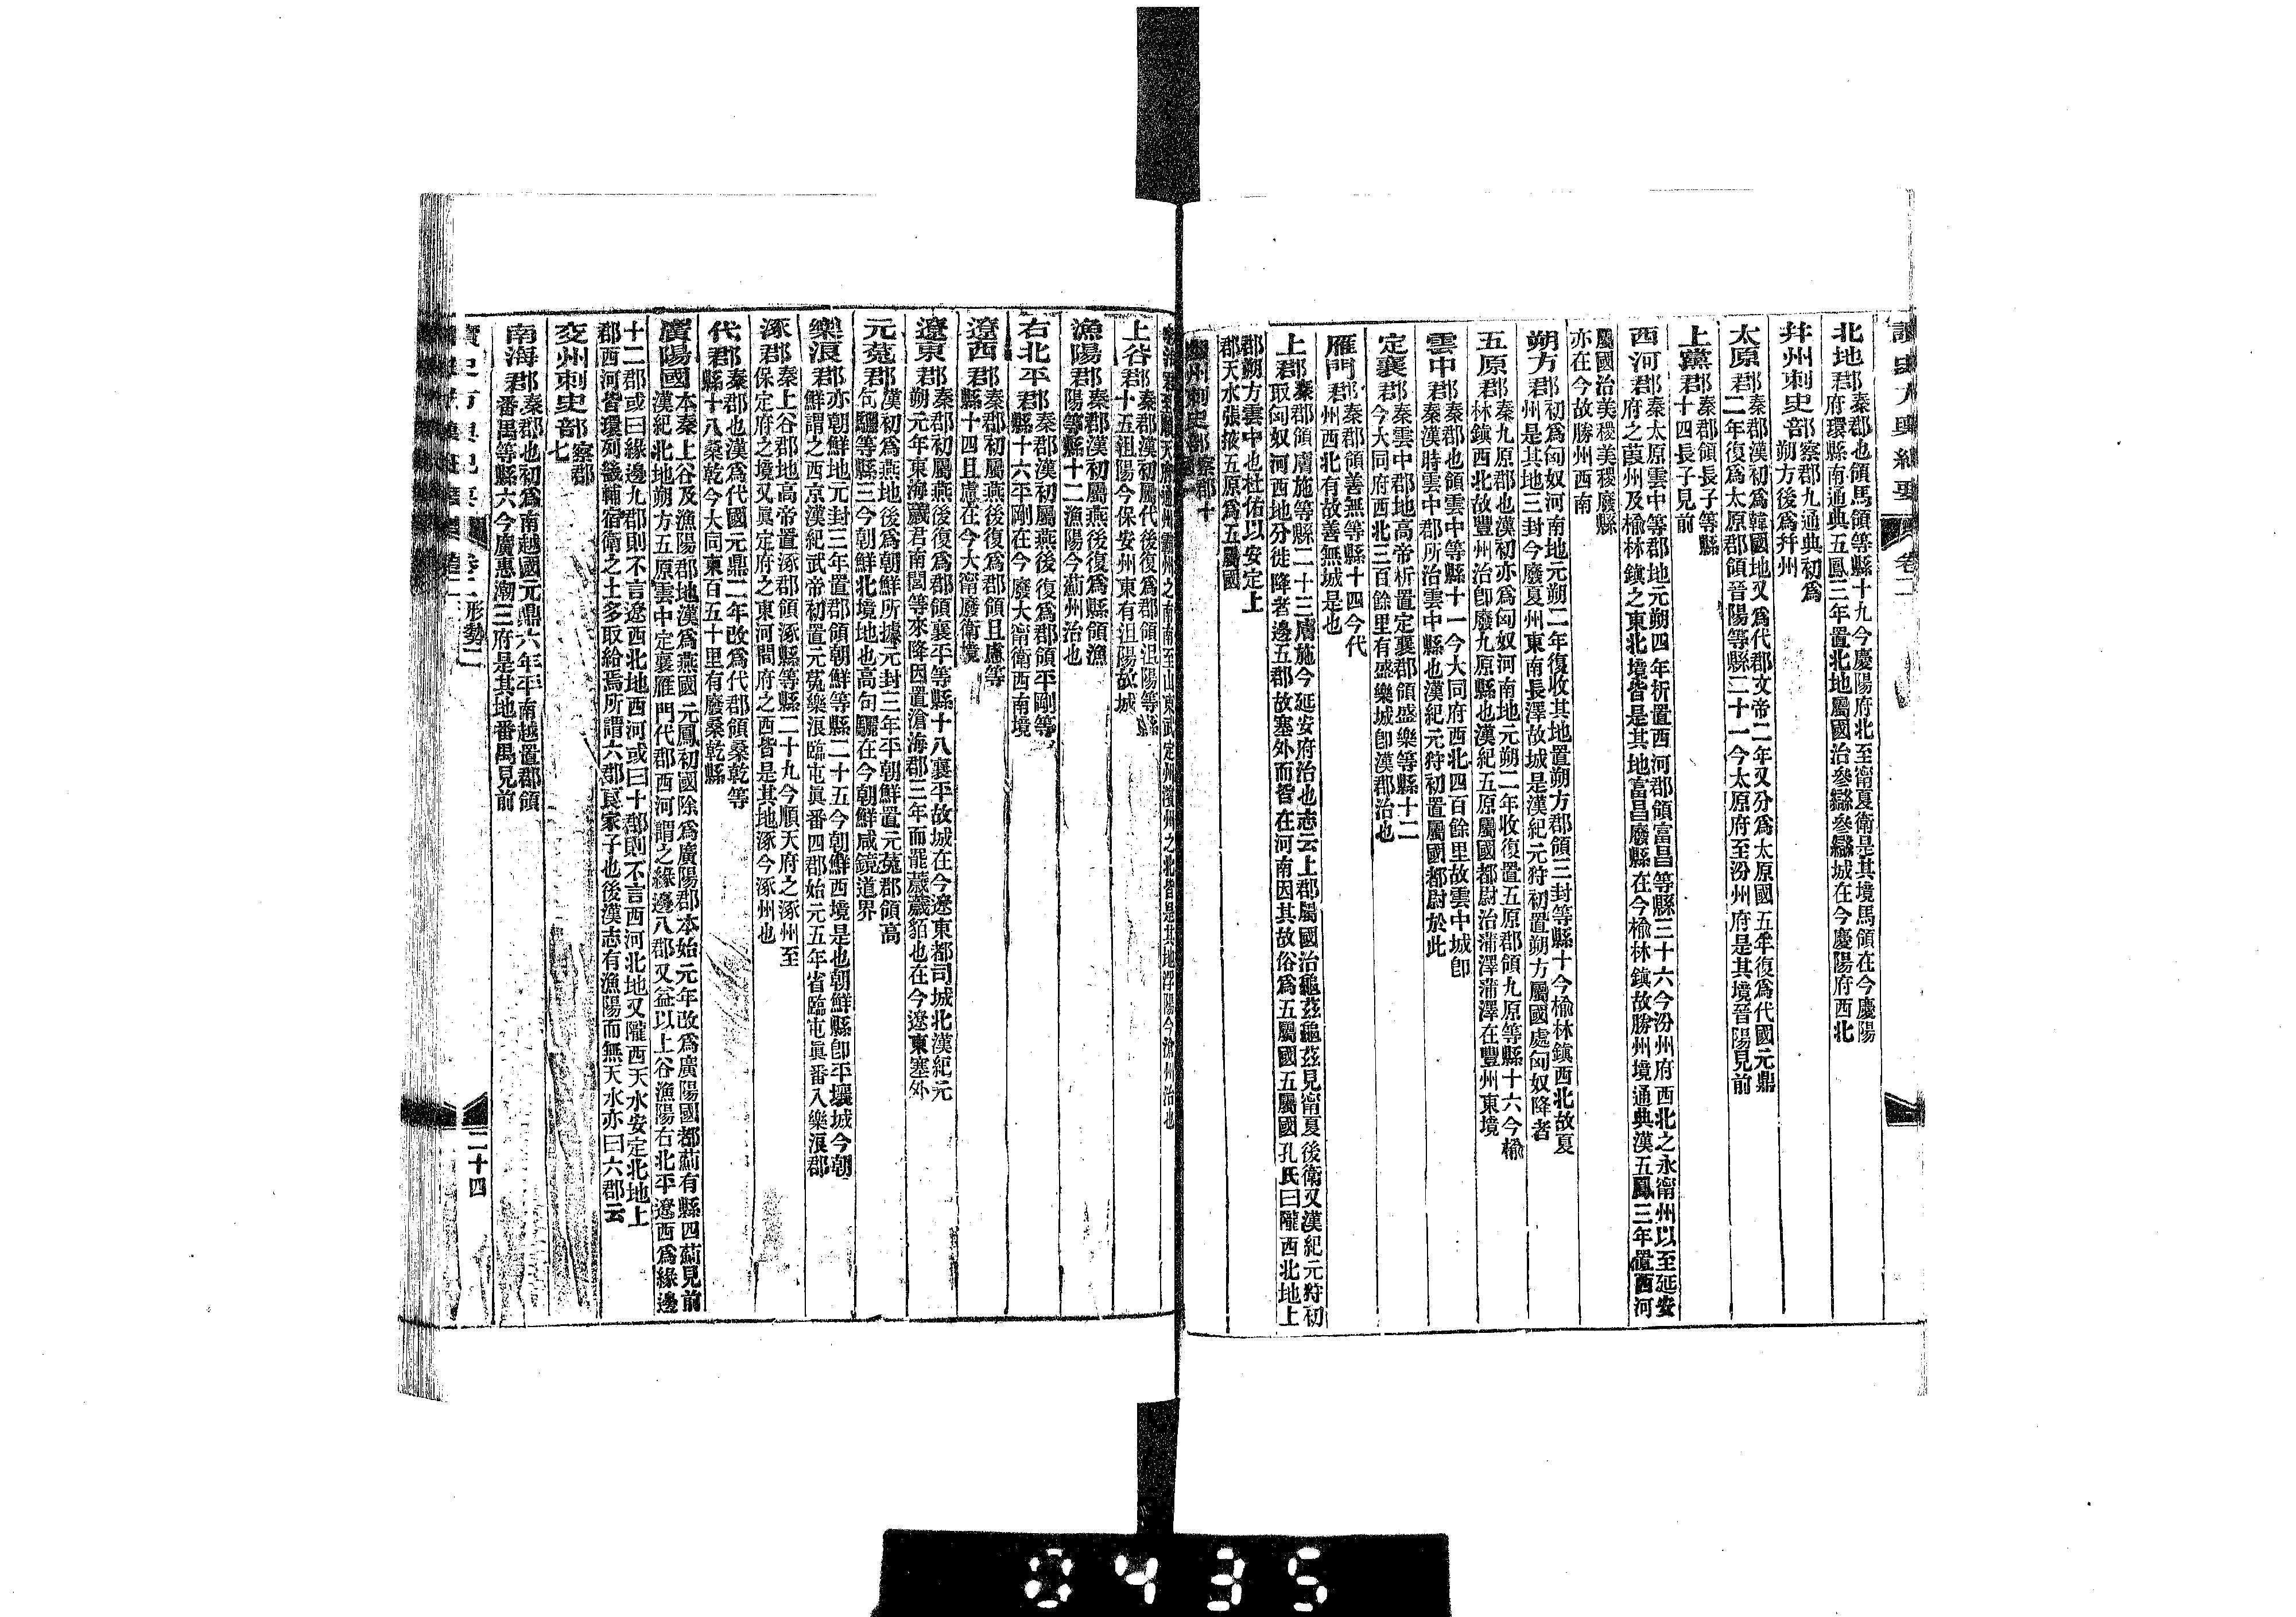 讀史方輿紀要 卷二
北地郡秦郡也領馬領等縣十九今慶陽府北至甯夏衛是其境馬領在今慶陽
府環縣南通典五鳳三年置北地屬國治參䜌參䜌城在今慶陽府西北
幷州刺史部察郡九通典初爲
朔方後爲幷州
太原郡秦郡漢初爲韓國地又爲代郡文帝二年又分爲太原國五年復爲代國元鼎
二年復爲太原郡領晉陽等縣二十一今太原府至汾州府是其境晉陽見前
上黨郡秦郡領長子等縣
十四長子見前
西河郡秦太原雲中等郡地元朔四年析置西河郡領富昌等縣三十六今汾州府西北之永甯州以至延安
府之葭州及榆林鎭之東北境皆是其地富昌廢縣在今榆林鎭故勝州境通典漢五鳳三年置西河
屬國治美稷美稷廢縣
亦在今故勝州西南
朔方郡初爲匈奴河南地元朔二年復收其地置朔方郡領三封等縣十今榆林鎭西北故夏
州是其地三封今廢夏州東南長澤故城是漢紀元狩初置朔方屬國處匈奴降者
五原郡秦九原郡也漢初亦爲匈奴河南地元朔二年收復置五原郡領九原等縣十六今榆
林鎭西北故豐州治卽廢九原縣也漢紀五原屬國都尉治蒲澤蒲澤在豐州東境
雲中郡秦郡也領雲中等縣十一今大同府西北四百餘里故雲中城卽
秦漢時雲中郡所治雲中縣也漢紀元狩初置屬國都尉於此
定襄郡秦雲中郡地高帝析置定襄郡領盛樂等縣十二
今大同府西北三百餘里有盛樂城卽漢郡治也
雁門郡秦郡領善無等縣十四今代
州西北有故善無城是也
上郡秦郡領膚施等縣二十三膚施今延安府治也志云上郡屬國治龜茲龜茲見甯夏後衛又漢紀元狩初
取匈奴河西地分徙降者邊五郡故塞外而皆在河南因其故俗爲五屬國五屬國孔氏曰隴西北地上
郡朔方雲中也杜佑以安定上
郡天水張掖五原爲五屬國
幽州刺史部察郡十
上谷郡秦郡漢初屬代後復爲郡領沮陽等縣
十五沮陽今保安州東有沮陽故城
漁陽郡秦郡漢初屬燕後復爲縣領漁
陽等縣十二漁陽今薊州治也
右北平郡秦郡漢初屬燕後復爲郡領平剛等
縣十六平剛在今廢大甯衛西南境
遼西郡秦郡初屬燕後復爲郡領且慮等
縣十四且慮在今大甯廢衛境
遼東郡秦郡初屬燕後復爲郡領襄平等縣十八襄平故城在今遼東都司城北漢紀元
朔元年東海薉君南閭等來降因置滄海郡三年而罷薉薉貊也在今遼東塞外
元菟郡漢初爲燕地後爲朝鮮所據元封三年平朝鮮置元菟郡領高
句驪等縣三今朝鮮北境地也高句驪在今朝鮮咸鏡道界
樂浪郡亦朝鮮地元封三年置郡領朝鮮等縣二十五今朝鮮西境是也朝鮮縣卽平壤城今朝
鮮謂之西京漢紀武帝初置元菟樂浪臨屯眞番四郡始元五年省臨屯眞番入樂浪郡
涿郡秦上谷郡地高帝置涿郡領涿縣等縣二十九今順天府之涿州至
保定府之境又眞定府之東河間府之西皆是其地涿今涿州也
代郡秦郡也漢爲代國元鼎二年改爲代郡領桑乾等
縣十八桑乾今大同東百五十里有廢桑乾縣
廣陽國本秦上谷及漁陽郡地漢爲燕國元鳳初國除爲廣陽郡本始元年改爲廣陽國都薊有縣四薊見前
漢紀北地朔方五原雲中定襄雁門代郡西河謂之緣邊八郡又益以上谷漁陽右北平遼西爲緣邊
十二郡或曰緣邊九郡則不言遼西北地西河或曰十郡則不言西河北地又隴西天水安定北地上
郡西河皆環列畿輔宿衛之士多取給焉所謂六郡良家子也後漢志有漁陽而無天水亦曰六郡云
交州刺史部察郡
七
南海郡秦郡也初爲南越國元鼎六年平南越置郡領
番禺等縣六今廣惠潮三府是其地番禺見前
讀史方輿紀要 卷二 形勢二
二十四
0435